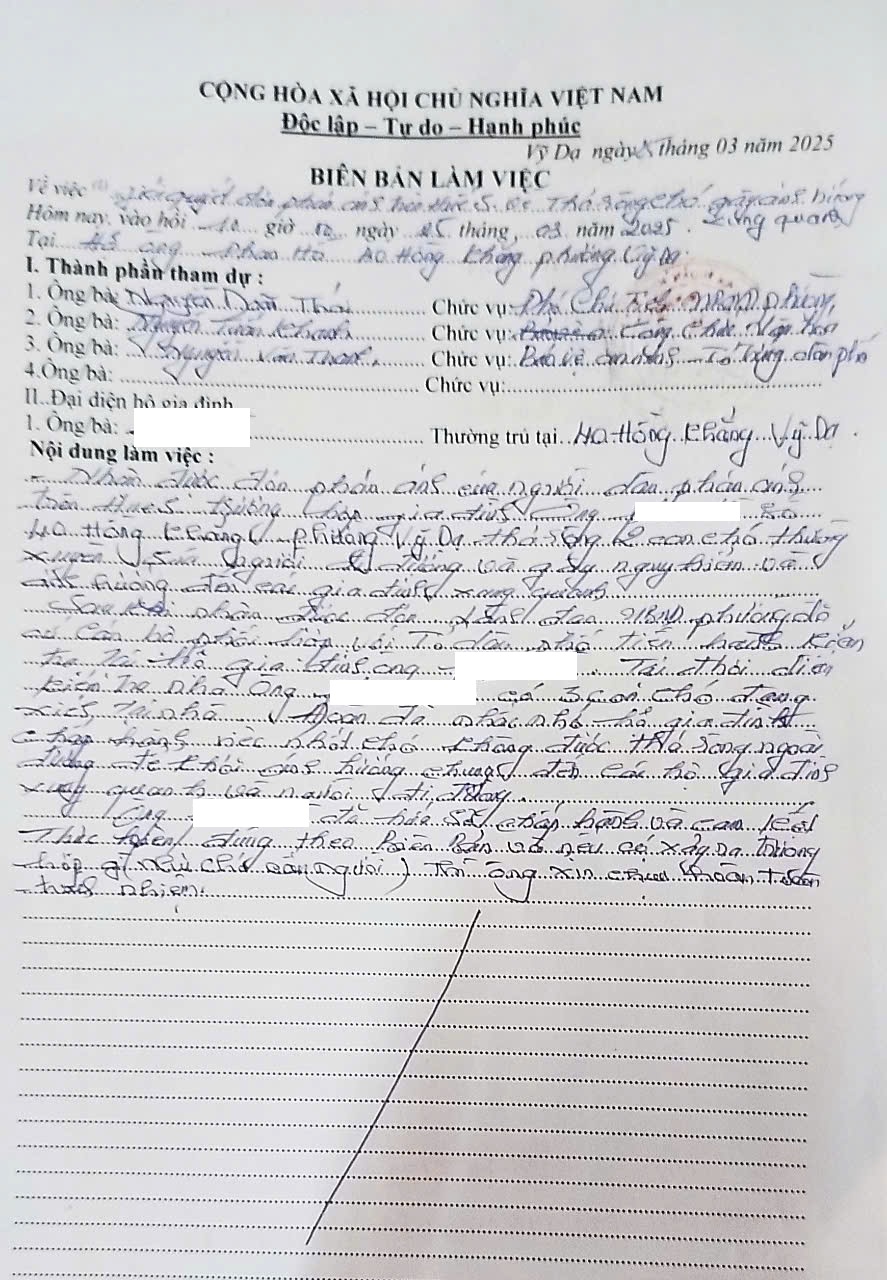 CỘNG HÒA XÃ HỘI CHỦ NGHĨA VIỆT NAM
Độc lập – Tự do – Hạnh phúc
Vỹ Dạ ngày tháng 03 năm 2025
BIÊN BẢN LÀM VIỆC
Về việc giải quyết đơn phản ánh trên Hue-S. Thả rông chó gây ảnh hưởng
xung quanh
Hôm nay, vào hồi 10 giờ ngày 25 tháng 03 năm 2025.
Tại Hộ ông Phan 40 Hồng Khẳng phường Vỹ Dạ
I. Thành phần tham dự :
1. Ông/bà: Nguyễn Chức vụ: Phó Chủ Tịch UBND phường,
2. Ông/bà: Nguyễn Tuấn Chức vụ: Công Chức
3. Ông/bà: Nguyễn Văn Chức vụ: Bảo vệ an ninh - Tổ dân phố
4.Ông bà: Chức vụ:
II. Đại diện hộ gia đình
1. Ông/bà: Thường trú tại 40 Hồng Khẳng Vỹ Dạ.
Nội dung làm việc :
- Nhận được đơn phản ánh của người dân phản ánh
trên HueS trường hợp gia đình ông số
40 Hồng Khẳng, phường Vỹ Dạ thả rông 2 con chó thường
xuyên sủa người đi đường và gây nguy hiểm và
ảnh hưởng đến các gia đình xung quanh.
Sau khi nhận được đơn, UBND phường đã
cử cán bộ phối hợp với Tổ dân phố tiến hành kiểm
tra tại hộ gia đình ông . Tại thời điểm
kiểm tra nhà ông có 3 con chó đang
xích tại nhà. Đoàn đã nhắc nhở hộ gia đình
chấp hành việc nhốt chó không được thả rông ngoài
đường để khỏi ảnh hưởng chung đến các hộ gia đình
xung quanh và người đi đường.
Ông đã hứa sẽ chấp hành và cam kết
thực hiện đúng theo biên bản và nếu có xảy ra trường
hợp gì (như chó cắn người) thì ông xin chịu hoàn toàn
trách nhiệm.